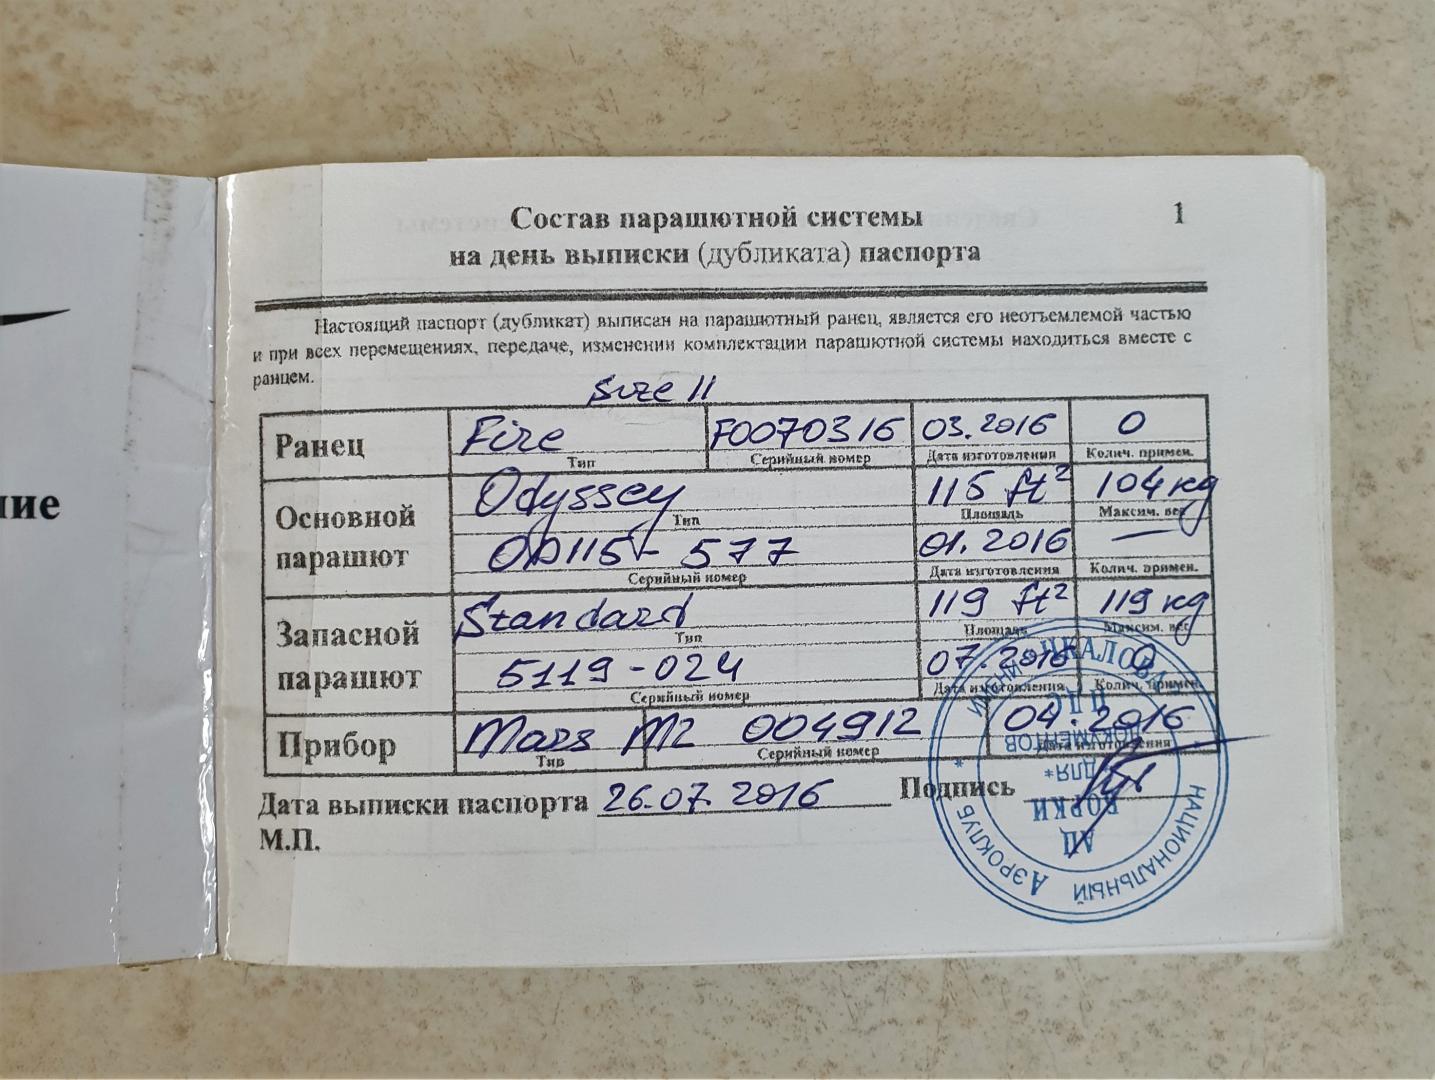 ние
Состав парашютной системы 1
на день выписки (дубликата) паспорта
Настоящий паспорт (дубликат) выписан на парашютный ранец, является его неотъемлемой частью
и при всех перемещениях, передаче, изменении комплектации парашютной системы находиться вместе с
ранцем.
Size 11
Ранец Fire F0070316 03.2016 0
Тип Серийный номер Дата изготовления Колич. примен.
Основной парашют Odyssey 115 ft² 104 kg
Тип Площадь Максим. вес
OD115 - 577 01.2016 —
Серийный номер Дата изготовления Колич. примен.
Запасной парашют Standard 119 ft² 119 kg
Тип Площадь Максим. вес
S119-024 07.2016 0
Серийный номер Дата изготовления Колич. примен.
Прибор Mars M2 004912 04.2016
Тип Серийный номер Дата изготовления
Дата выписки паспорта 26.07.2016 Подпись
М.П.
НАЦИОНАЛЬНЫЙ АЭРОКЛУБ * ИМЕНИ ЧКАЛОВА *
АЦ
БОРКИ
*ДЛЯ*
ДОКУМЕНТОВ
ПДС